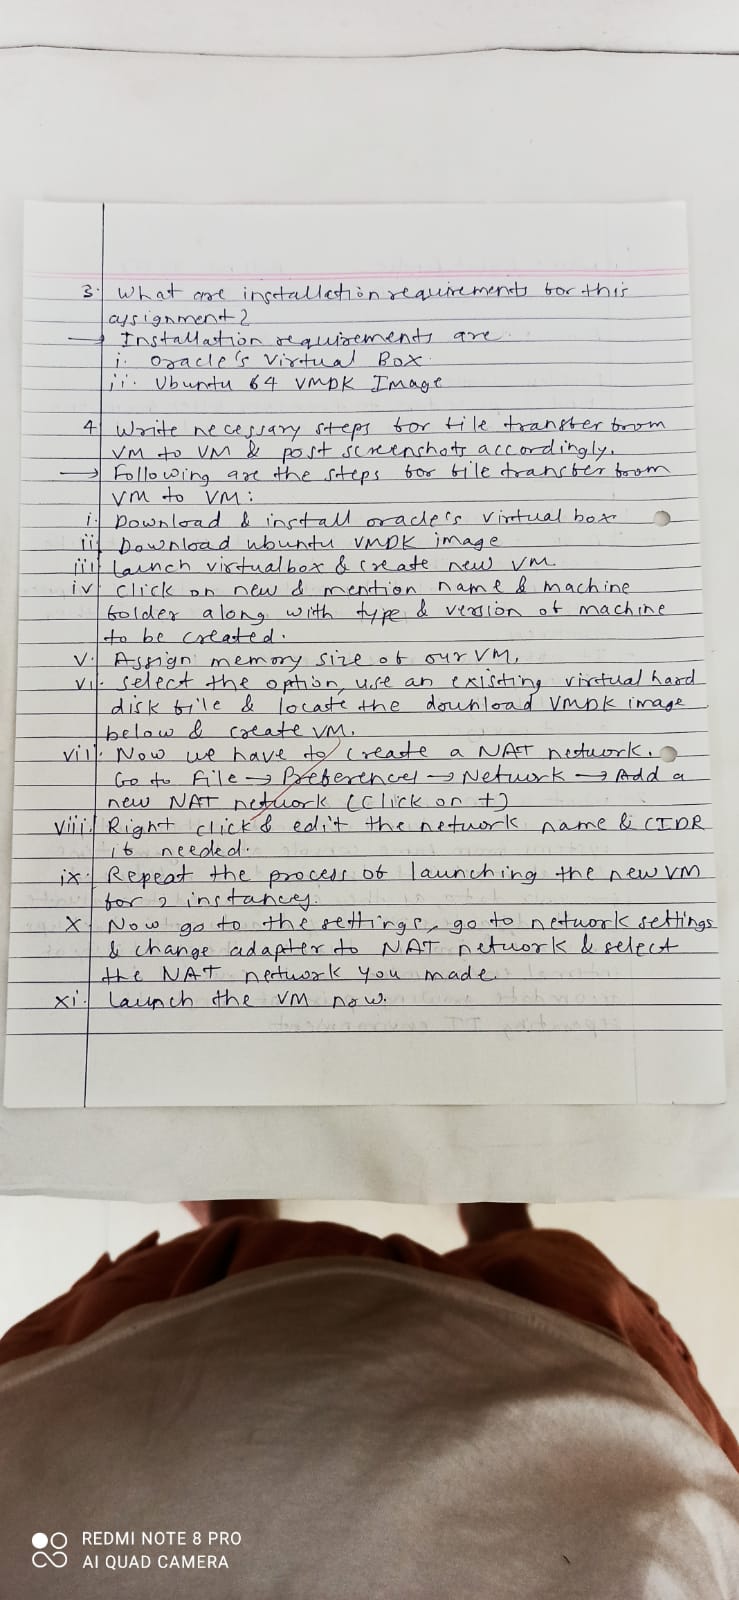 3. What are installation requirements for this
assignment?
→ Installation requirements are.
i. Oracle's Virtual Box.
ii. Ubuntu 64 VMDK Image
4 Write necessary steps for file transfer from
VM to VM & post screenshots accordingly.
→ Following are the steps for file transfer from
VM to VM:
i. Download & install oracle's virtual box.
ii. Download ubuntu VMDK image
iii. Launch virtualbox & create new VM
iv. Click on new & mention name & machine
folder along with type & version of machine
to be created.
v. Assign memory size of our VM.
vi. Select the option, use an existing virtual hard
disk file & locate the dounload VMDK image
below & create VM.
vii. Now we have to create a NAT network.
Go to File → Preferences → Network → Add a
new NAT network (Click on +)
viii. Right click & edit the network name & CIDR
if needed.
ix. Repeat the process of launching the new VM
for 2 instances.
x. Now go to the settings, go to network settings
& change adapter to NAT network & select
the NAT network you made.
xi. Launch the VM now.
REDMI NOTE 8 PRO
AI QUAD CAMERA